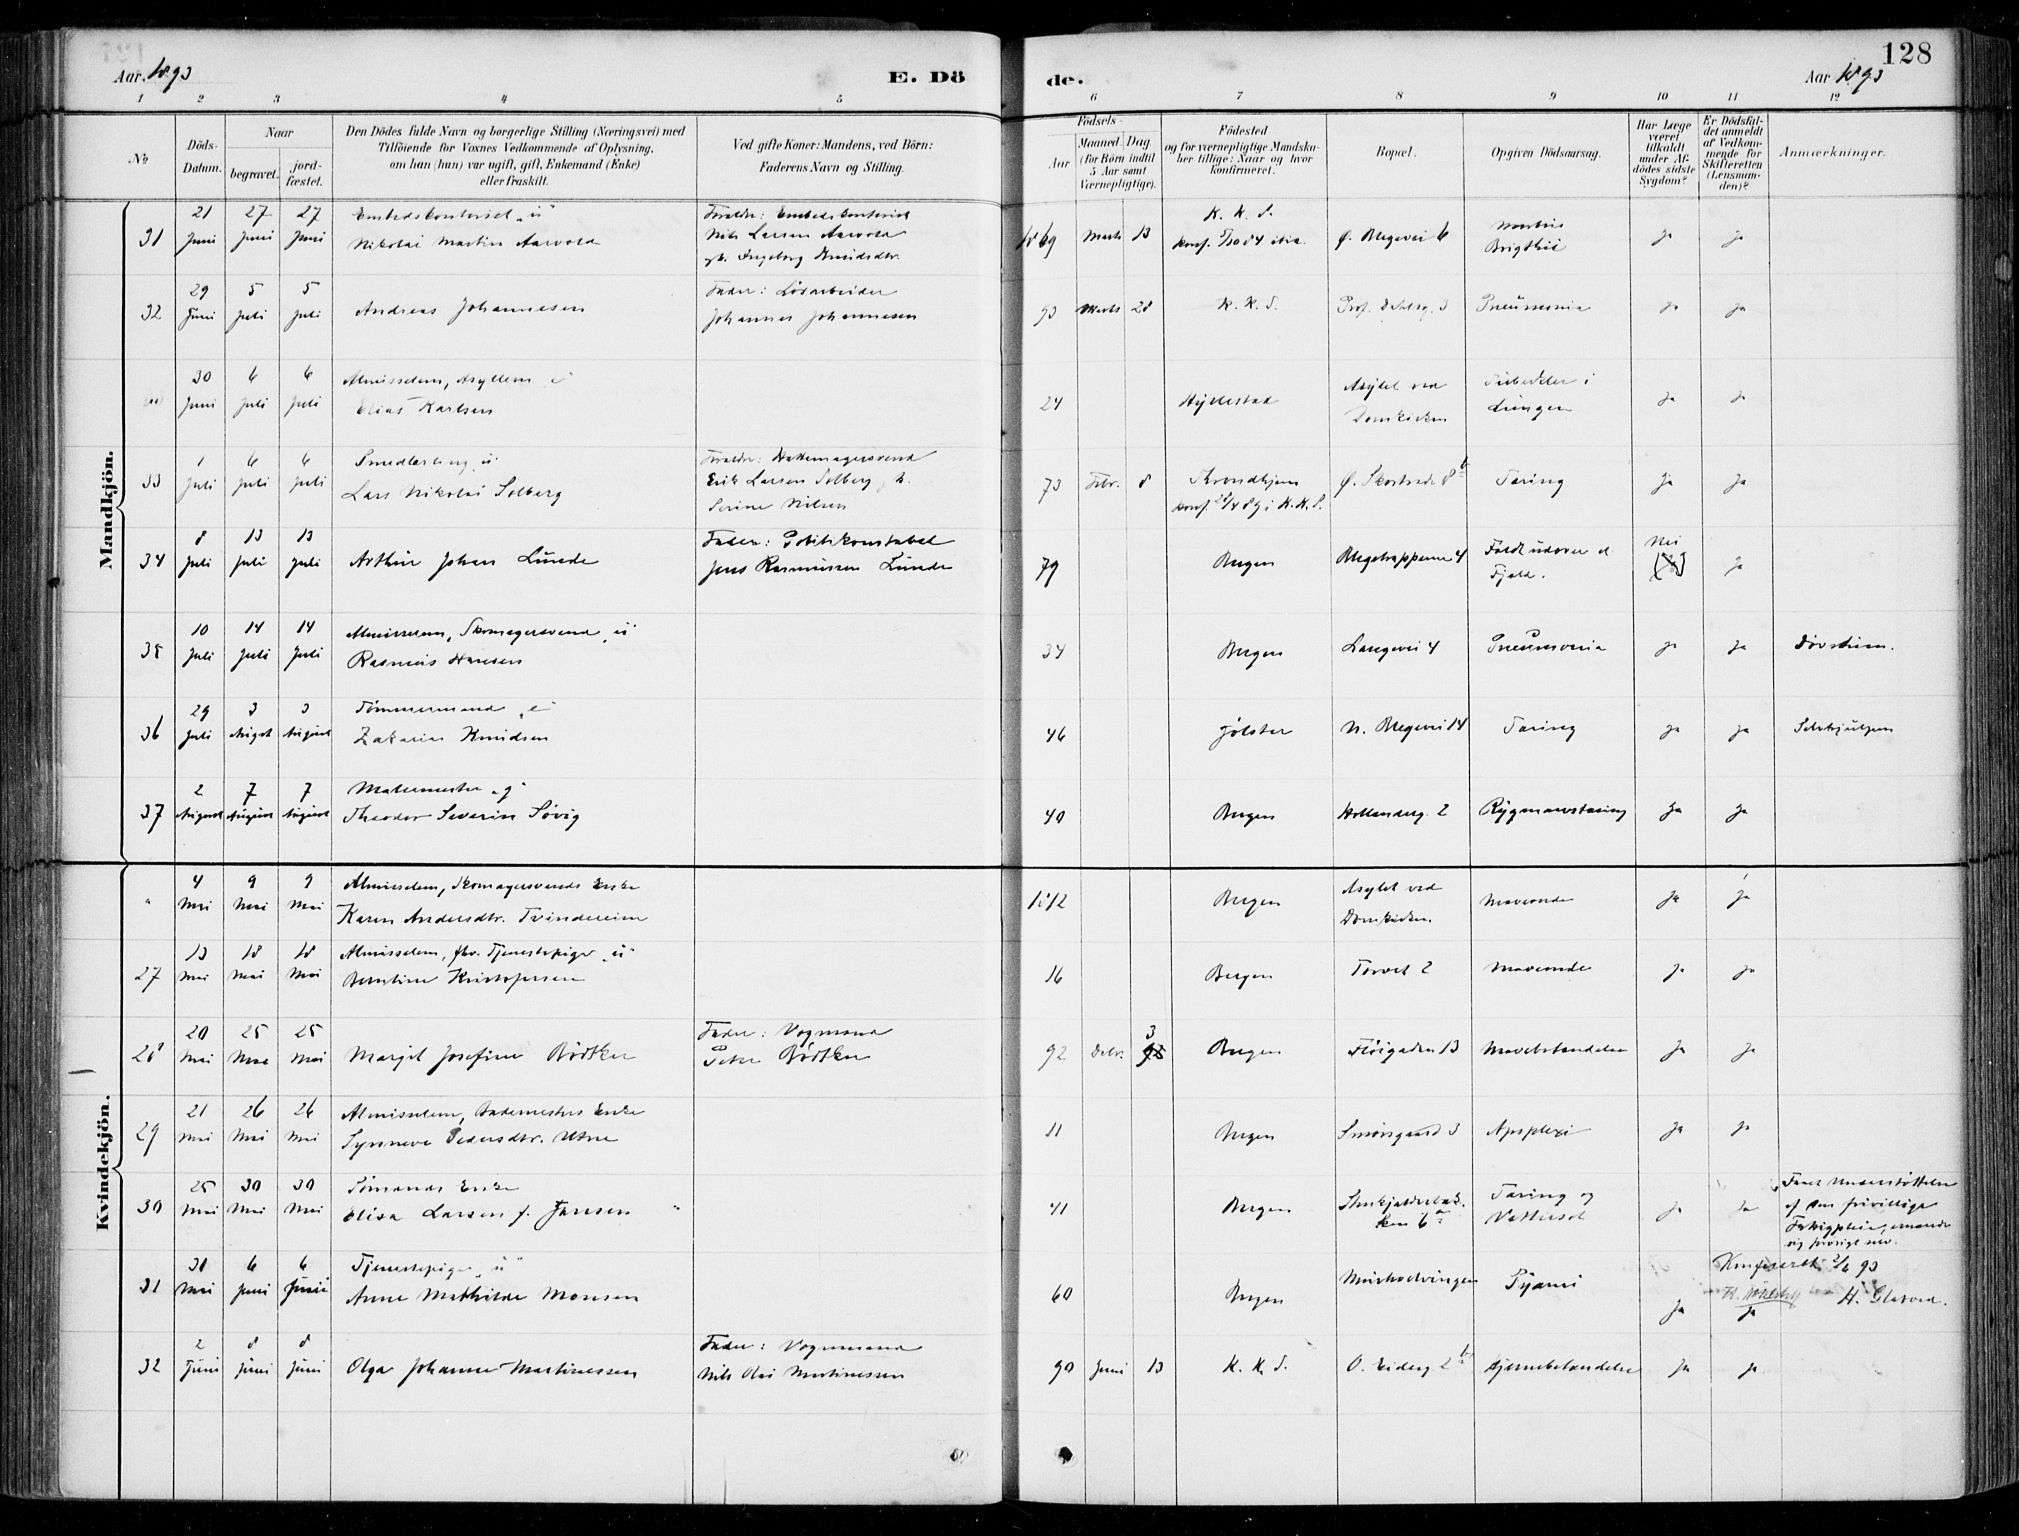 128
Aar. 1893
E. Dö
de.
Aar 1893
1 2 3 4 5 6 7 8 9 10 11 12
No
Döds-
Datum.
Naar
begravet.
jord-
fæstet.
Den Dödes fulde Navn og borgerlige Stilling (Næringsvei) med
Tilföiende for Voxnes Vedkommende af Oplysning,
om han (hun) var ugift, gift, Enkemand (Enke)
eller fraskilt.
Ved gifte Koner: Mandens, ved Börn:
Faderens Navn og Stilling.
Födsels-
Aar
Maaned Dag
(for Börn indtil
5 Aar samt
Værnepligtige).
Födested
og for værnepligtige Mandska-
ber tillige: Naar og hvor
konfirmeret.
Bopæl.
Opgiven Dödsaarsag.
Har Læge
været
tilkaldt
under Af-
dödes sidste
Sygdom?
Er Dödsfal-
det anmeldt
af Vedkom-
mende for
Skifteretten
(Lensman-
den)?
Anmærkninger.
Mandkjön.
31
21 Juni
27 Juni
27 Juni
Nikolai Martin Aarvold
Nils Larsen Aarvold
Ingeborg Knudsdtr.
1869 Marts 13
K. K. S.
Ø. Blegevei 6
Morbus
Brigthii
ja
ja
32
29 Juni
5 Juli
5 Juli
Andreas Johannesen
Fader: Løsarbeider
Johannes Johannesen
93 Marts 28
K. K. S.
Pneumonia
ja
ja
30 Juni
6 Juli
6 Juli
Almisselem, Asyllem
Elias Karlsen
24
Hyllestad
Asylet ved
Domkirken
Tuberkler i
Lungen
ja
ja
33
1 Juli
6 Juli
6 Juli
Lars Nikolai Solberg
Erik Larsen Solberg
Serine Nilsen
73 Febr. 8
Trondhjem
Tæring
ja
ja
34
8 Juli
13 Juli
13 Juli
Arthur Johan Lunde
Fader: Politikonstabel
Jens Rasmussen Lunde
79
Bergen
Blegetrapperne 4
Faldt udover et
Fjeld.
Nei
ja
35
10 Juli
14 Juli
14 Juli
Almisselem, Skomagersvend "u"
Rasmus Hansen
34
Bergen
Langevei 4
Pneumonia
ja
ja
Døvstum.
36
29 Juli
3 August
3 August
Tømmermand "e"
Zakarias Knudsen
46
Jølster
N. Blegevei 14
Tæring
ja
ja
Selvhjulpen
37
2 August
7 August
7 August
Malermester "g"
Theodor Severin Søvig
40
Bergen
Hollenderg. 2
Rygmarvstæring
ja
ja
Kvindekjön.
"
4 Mai
9 Mai
9 Mai
Almisselem, Skomagersvends Enke
Karen Andersdtr. Tvindereim
1812
Bergen
Asylet ved
Domkirken.
Maveonde
ja
ja
27
13 Mai
18 Mai
18 Mai
Almisselem, fhv. Tjenestepige "u"
Berntine Kristofersen
16
Bergen
Torvet 2
Maveonde
ja
ja
28
20 Mai
25 Mai
25 Mai
Margit Josefine Bödtker
Fader: Vognmand
Peter Bödtker
92
3
Bergen
Fløigaden 13
ja
ja
29
21 Mai
26 Mai
26 Mai
Synneve Pedersdtr. Utne
11
Bergen
Smørsgaard 3
Apoplexi
ja
ja
30
25 Mai
30 Mai
30 Mai
Sømands Enke
Elisa Larsen f. Jansen
41
Bergen
Tæring og
Vattersot
ja
ja
Faaet Understøttelse
af den frivillige
31
31 Mai
6 Juni
6 Juni
Tjenestepige "u"
Anne Mathilde Monsen
60
Bergen
Pyæmi
ja
ja
H. Glatved.
32
2 Juni
8 Juni
8 Juni
Olga Johanne Martinussen
Fader: Vognmand
Nils Olai Martinussen
90 Juni 13
K. K. S.
Hjernebetændelse
ja
ja